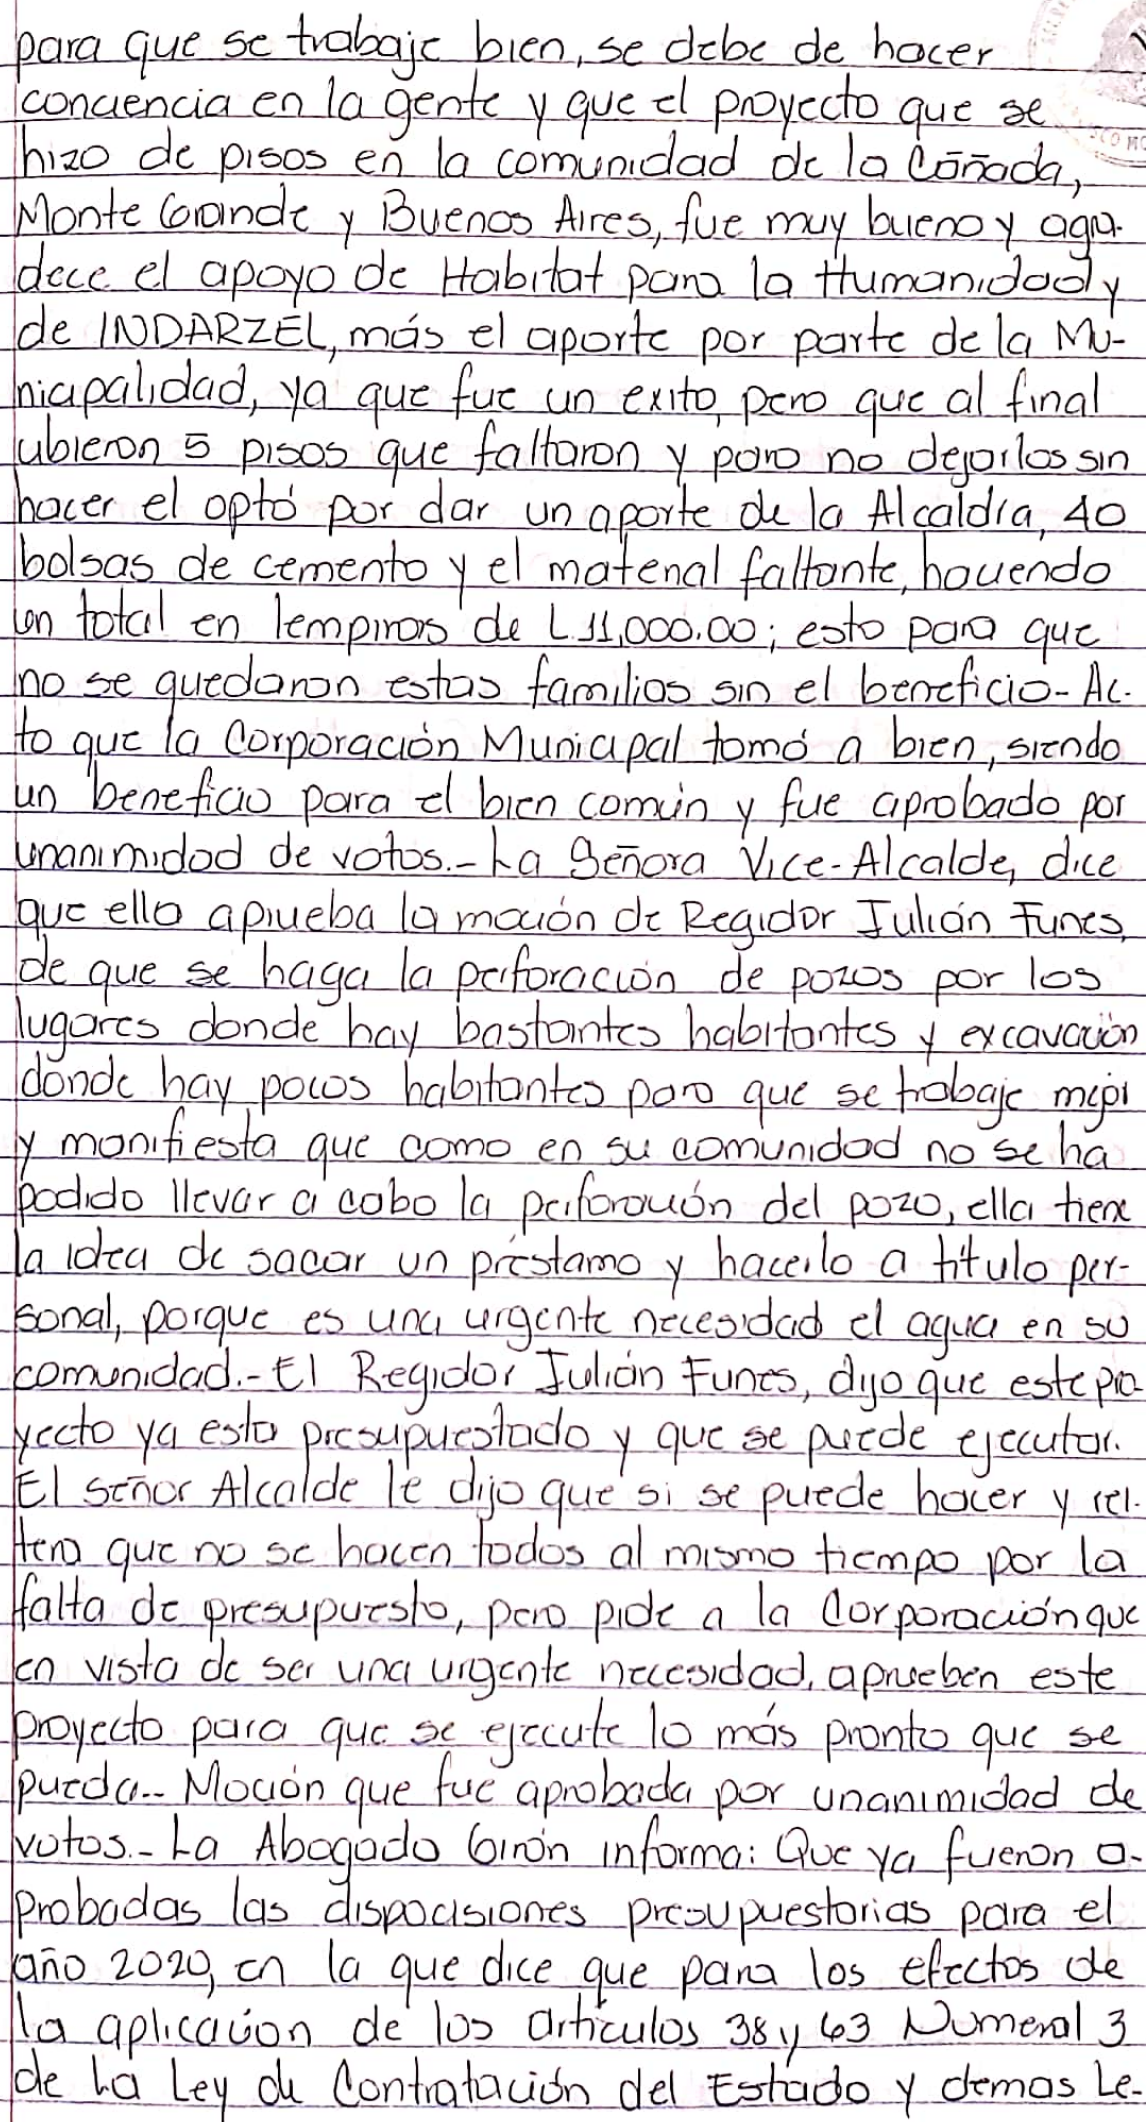 para que se trabaje bien, se debe de hacer
conciencia en la gente y que el proyecto que se
hizo de pisos en la comunidad de la Cañada,
Monte Grande y Buenos Aires, fue muy bueno y agra-
dece el apoyo de Habitat para la Humanidad y
de INDARZEL, más el aporte por parte de la Mu-
nicipalidad, ya que fue un exito, pero que al final
ubieron 5 pisos que faltaron y para no dejarlos sin
hacer el optó por dar un aporte de la Alcaldía, 40
bolsas de cemento y el material faltante, haciendo
un total en lempiras de L.11,000.00; esto para que
no se quedaran estas familias sin el beneficio- Ac-
to que la Corporación Municipal tomó a bien, siendo
un beneficio para el bien común y fue aprobado por
unanimidad de votos.- La Señora Vice-Alcalde, dice
que ella aprueba la moción de Regidor Julián Funes,
de que se haga la perforación de pozos por los
lugares donde hay bastantes habitantes y excavación
donde hay pocos habitantes para que se trabaje mejor
y manifiesta que como en su comunidad no se ha
podido llevar a cabo la perforación del pozo, ella tiene
la idea de sacar un préstamo y hacerlo a título per-
sonal, porque es una urgente necesidad el agua en su
comunidad.- El Regidor Julián Funes, dijo que este pro-
yecto ya esta presupuestado y que se puede ejecutar.
El señor Alcalde le dijo que si se puede hacer y rei-
tera que no se hacen todos al mismo tiempo por la
falta de presupuesto, pero pide a la Corporación que
en vista de ser una urgente necesidad, aprueben este
proyecto para que se ejecute lo más pronto que se
pueda.- Moción que fue aprobada por unanimidad de
votos.- La Abogada Girón informa: Que ya fueron a-
probadas las dispocisiones presupuestarias para el
año 2020, en la que dice que para los efectos de
la aplicación de los artículos 38 y 63 Numeral 3
de La Ley de Contratación del Estado y demas Le-